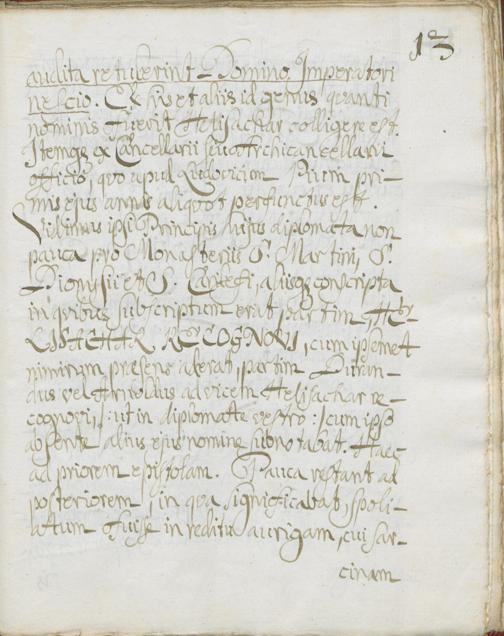 13
audita retulerint Domino Imperatori
nescio. Ex his et aliis id genus quanti
nominis fuerit Helisachar colligere est.
Itemq; ex Cancellarii seu Archicancellarii
officio, quo apud Ludovicum Pium pri-
mis ejus annis aliquot perfunctus est.
Vidimus ipsi Principis hujus diplomata non
pauca pro Monasteriis S. Martini, S.
Dionysii et S. Carilefi, aliisq; conscripta
in quibus subscriptum erat partim,
RECOGNOVI, cum ipsemet
nimirum praesens aderat, partim Duran-
dus vel Arnoldus ad vicem Helisachar re-
cognovi /: ut in diplomate vestro :/ cum ipso
absente alius ejus nomine subnotabat. Haec
ad priorem epistolam. Pauca restant ad
posteriorem, in qua significabat, spoli-
atum fuisse in reditu aurigam, cui sar-
cinam